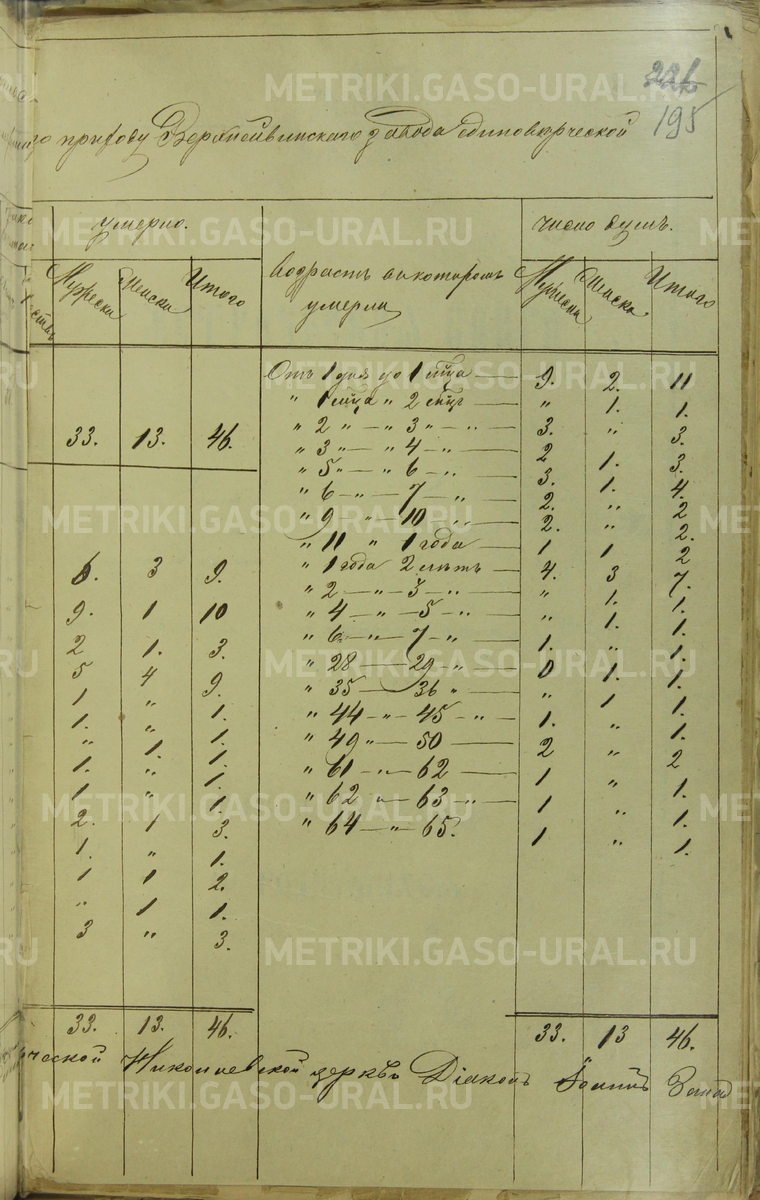 221
195
по приходу Верхнейвинскаго завода единоверческой
умерло. число душ.
Мужеска Женска Итого Возраст в котором умерли Мужеска Женска Итого
От 1 дня до 1 м̃ца — 9. 2. 11
" 1 м̃ца " 2 м̃цъ — " 1. 1.
33. 13. 46. " 2 " — " 3 " - " — 3. " 3.
" 3 " — " 4 - " — 2 1. 3.
" 5 " — " 6 - " — 3. 1. 4.
" 6 — " — 7 — " 2. " 2
" 9 " — 10 " 2. " 2.
" 11 " 1 года — 1 1 2
6. 3 9. " 1 года 2 летъ — 4. 3 7.
9. 1 10 " 2 — " — 3 - " — " 1. 1.
2 1. 3. " 4 — " — 5 - " — " 1. 1.
5 4 9. " 6 — " — 7 - " — 1. " 1.
1 " 1. " 28 — 29 " — 0 1. 1.
1. " 1. " 35 — 36 " — " 1 1.
" 1. 1. " 44 — " — 45 - " — 1. " 1.
1. " 1. " 49 " — 50 — 2 " 2
1 " 1. " 61 — " — 62 — 1 " 1.
2. 1 3. " 62 " — 63 - " — 1 " 1.
1. " 1. " 64 — " — 65. 1 " 1.
1 1 2.
" 1 1.
3 " 3.
33. 13. 46. 33. 13 46.
Николаевской церкви Діаконъ Іоаннъ
METRIKI.GASO-URAL.RU